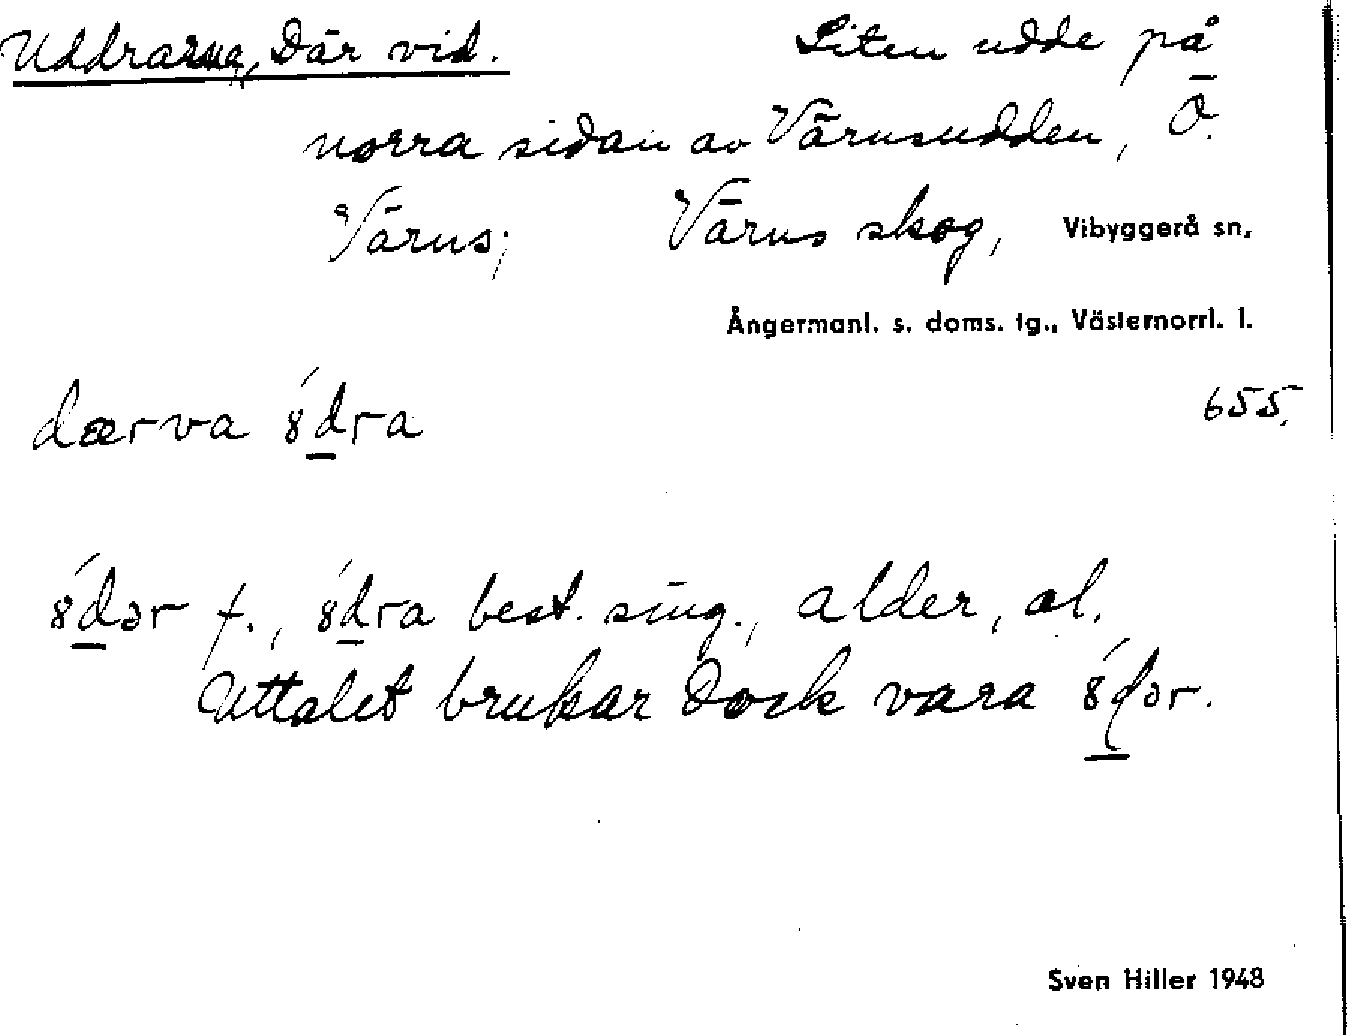 Uddrarna, Där vid. Liten udde på
norra sidan av Värnsudden, Ö.
Värns; Värns skog, Vibyggerå sn,
Ångermanl. s. doms. tg., Västernorrl. l.
dærva 8́dra 655.
8́dər f., 8́dra best. sing., alder, al.
Uttalet brukar dock vara 8́ɖər.
Sven Hiller 1948